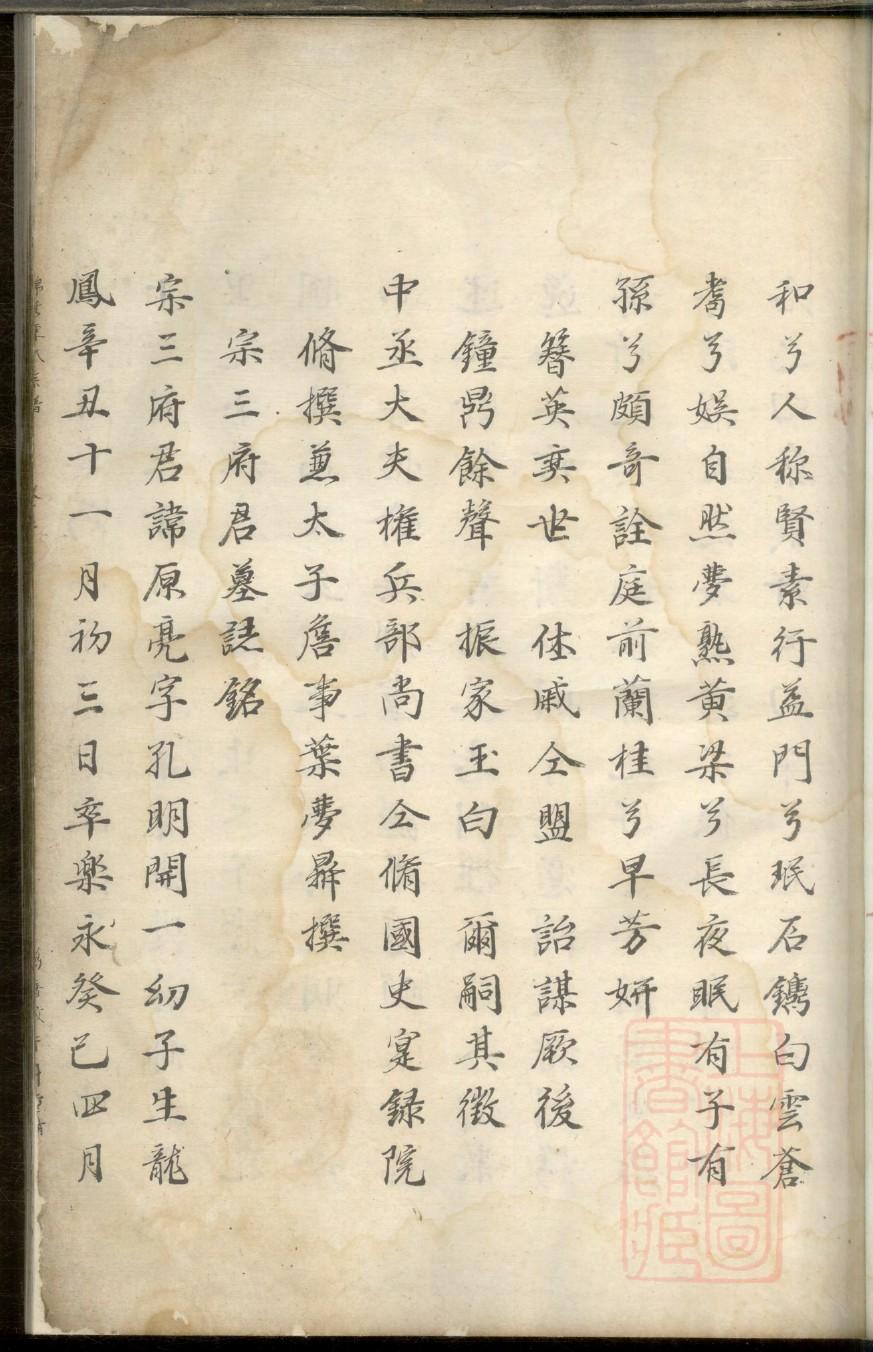 和兮人称賢素行益門兮珉石鐫白雲蒼
耈兮娱自然夢熟黄梁兮長夜眠有子有
孫兮頗奇詮庭前蘭桂兮早芳妍
簪英奕世　休戚仝盟　詒謀厥後
鐘鼎餘聲　振家玉白　爾嗣其徵
中丞大夫權兵部尚書仝脩國史寔録院
脩撰兼太子詹事葉夢鼎撰
宗三府君墓誌銘
宗三府君諱原亮字孔明開一幼子生龍
鳳辛丑十一月初三日卒樂永癸已四月
上海圖
書館藏